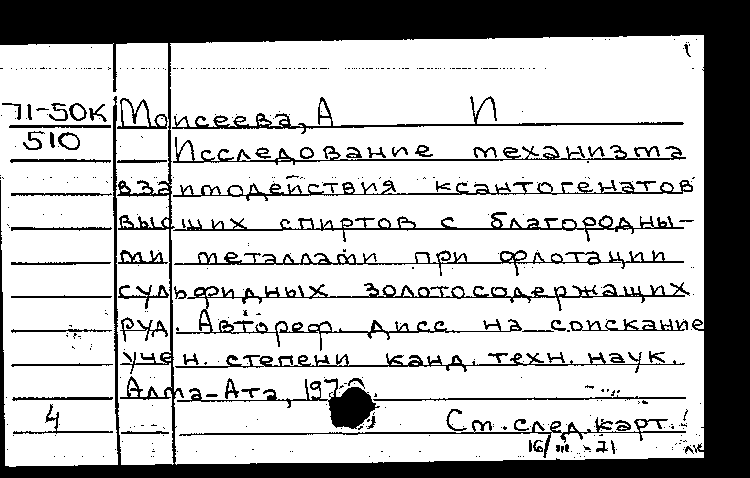 71-50К Моисеева, А И
510 Исследование механизма
взаимодействия ксантогенатов
высших спиртов с благородны-
ми металлами при флотации
сульфидных золотосодержащих
руд. Автореф. дисс. на соискание
учен. степени канд. техн. наук.
Алма-Ата,
4 См. след. карт.
16/III-71